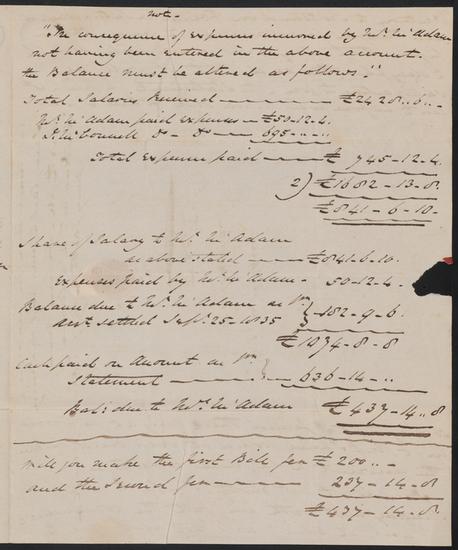 note -
"In consequence of expenses incurred by Mr. McAdam
not having been entered in the above account.
the Balance must be altered as follows."
Total Salaries Received — £2428 .. 6 .. -
Mr. McAdam paid expenses - £50-12-4.
D. McConnell Do - Do - 695 - .. - ..
Total expense paid — £ 745-12-4.
2) £1682-13-8.
£841-6-10-
Share of Salary to Mr. McAdam
as above stated - £841-6-10.
Expenses paid by Mr. McAdam - 50-12-4.
Balance due to Mr. McAdam as pr
acct. settled Sept. 25-1835 } -182-9-6.
£1074-8-8
Cash paid on Amount as pr
Statement — } 636-14-..
Bal: due to Mr. McAdam £437-14..8
Will you make the first Bill for £200 .. -
and the Second for — 237-14-8
£437-14-8.